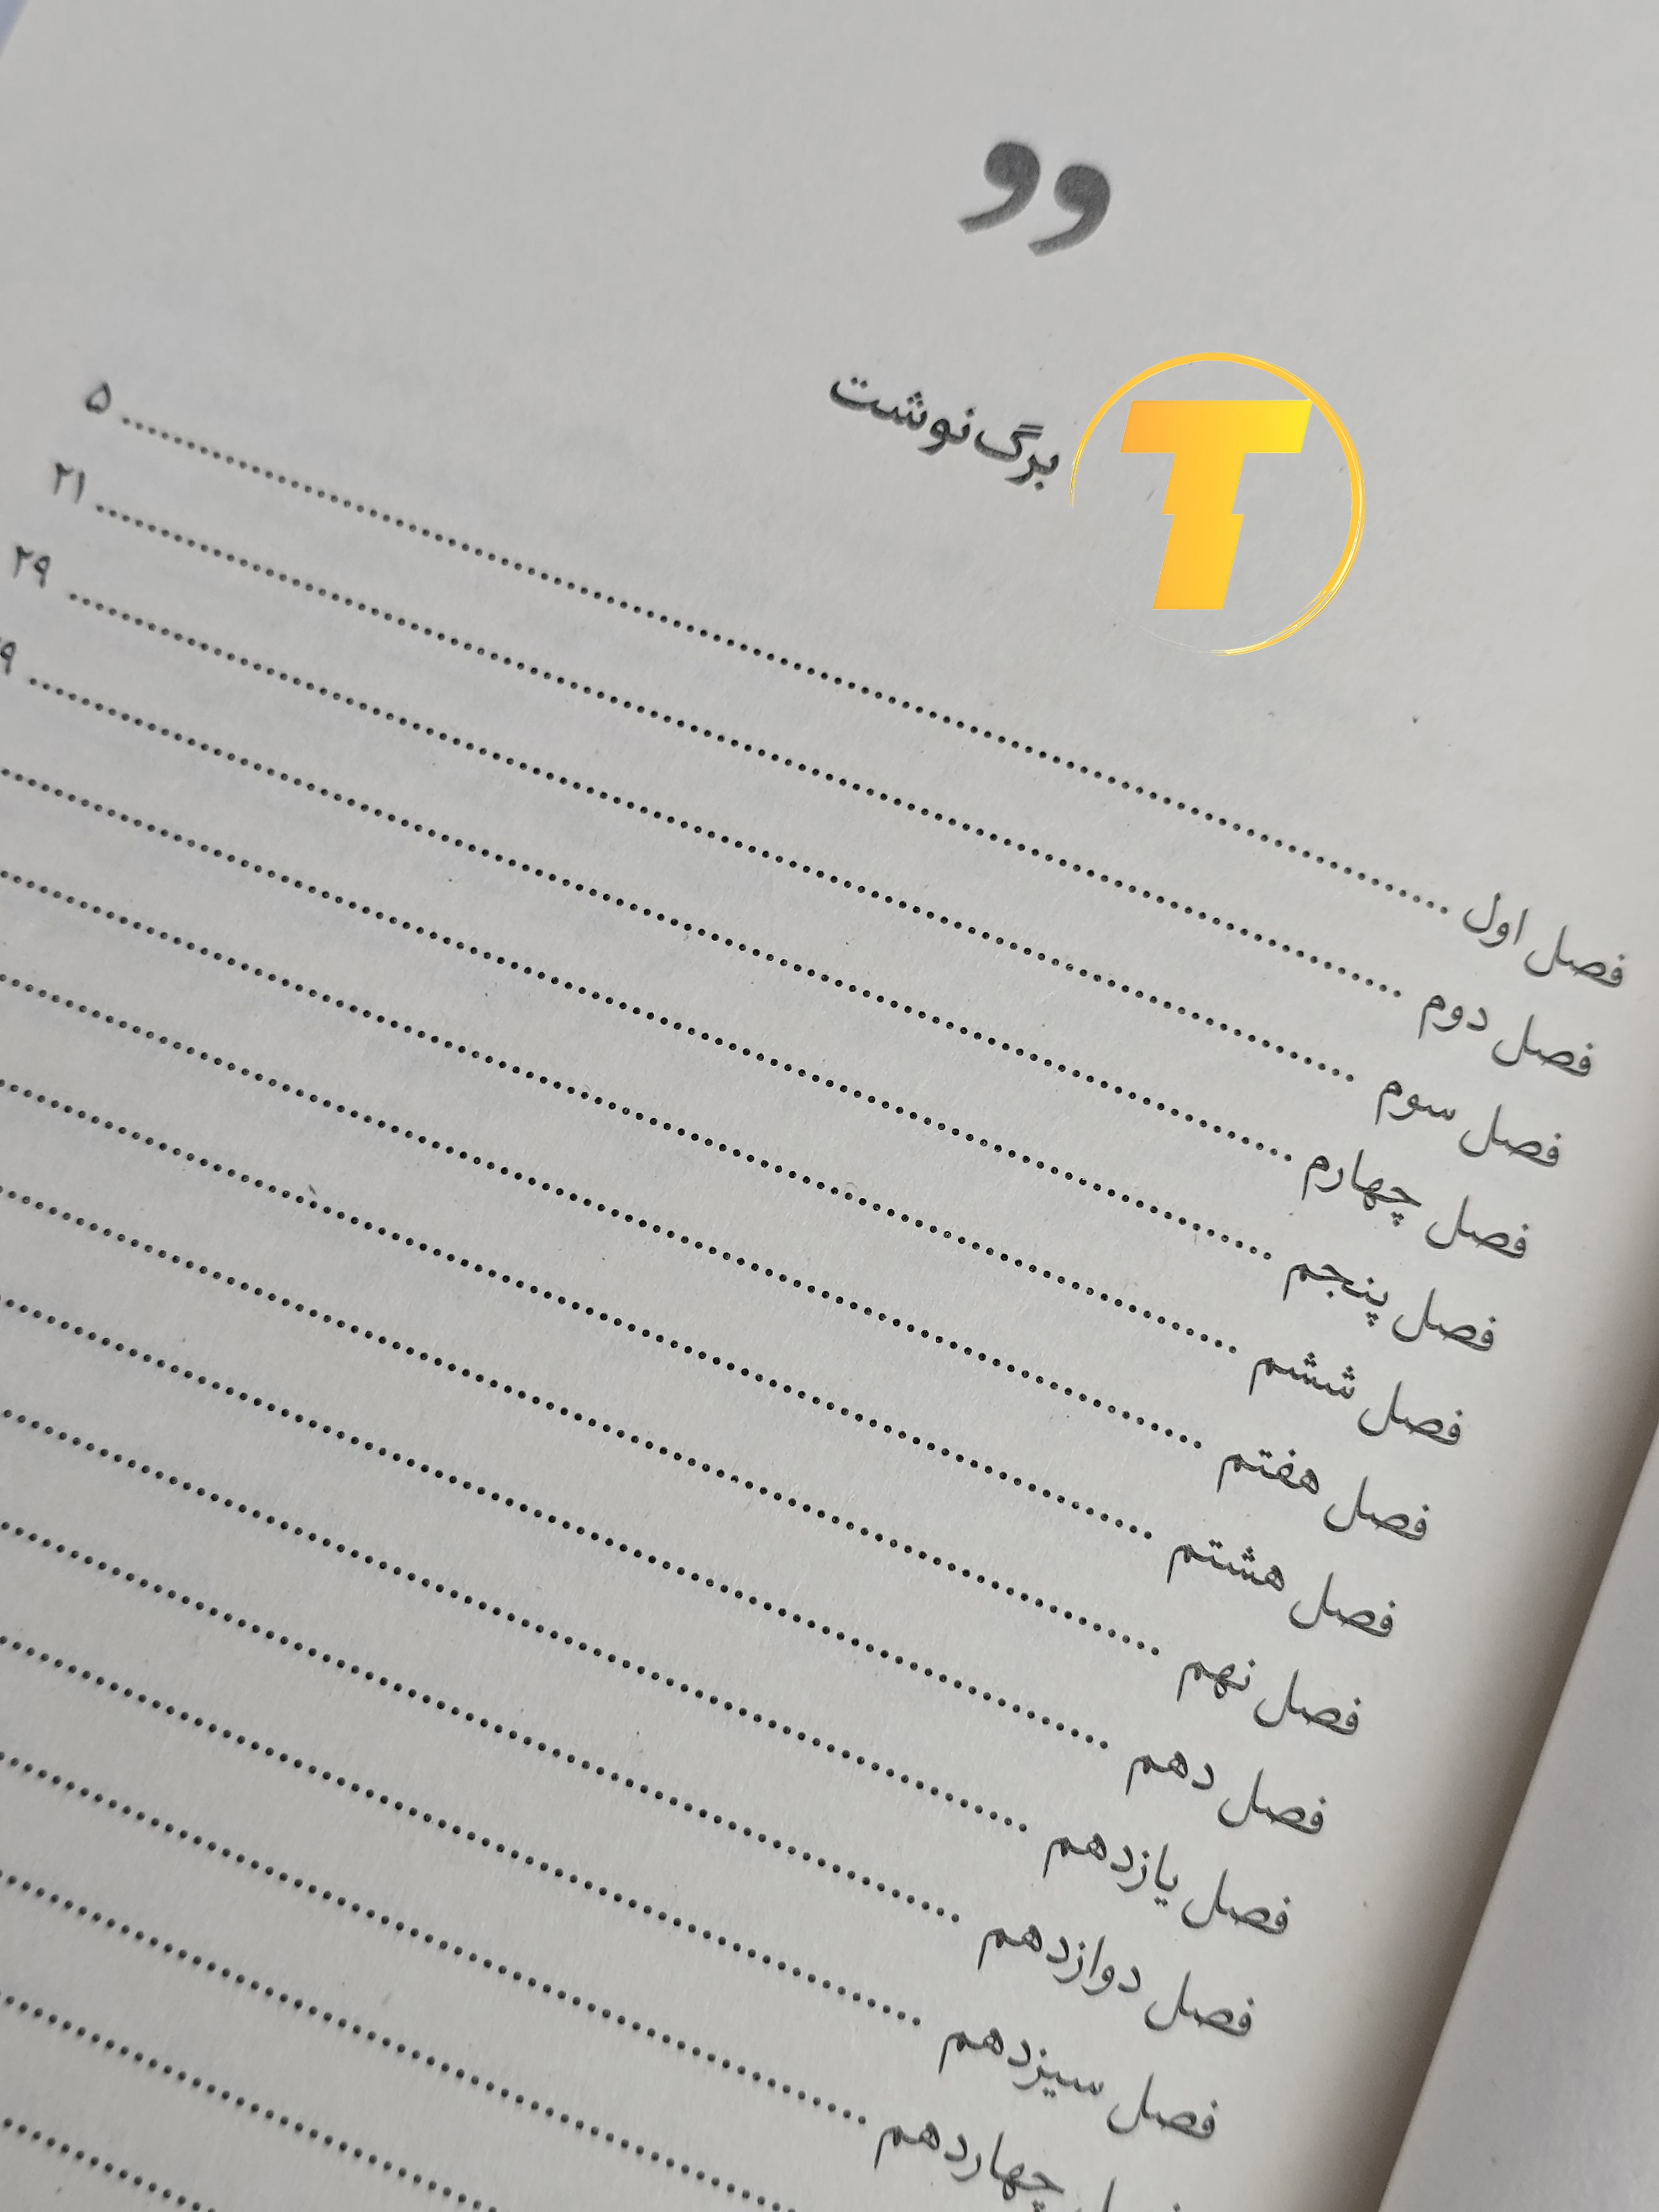 ،،
برگ‌نوشت
T
فصل اول ........ ۵
فصل دوم ........ ۲۱
فصل سوم ........ ۲۹
فصل چهارم ........
فصل پنجم ........
فصل ششم ........
فصل هفتم ........
فصل هشتم ........
فصل نهم ........
فصل دهم ........
فصل یازدهم ........
فصل دوازدهم ........
فصل سیزدهم ........
فصل چهاردهم ........